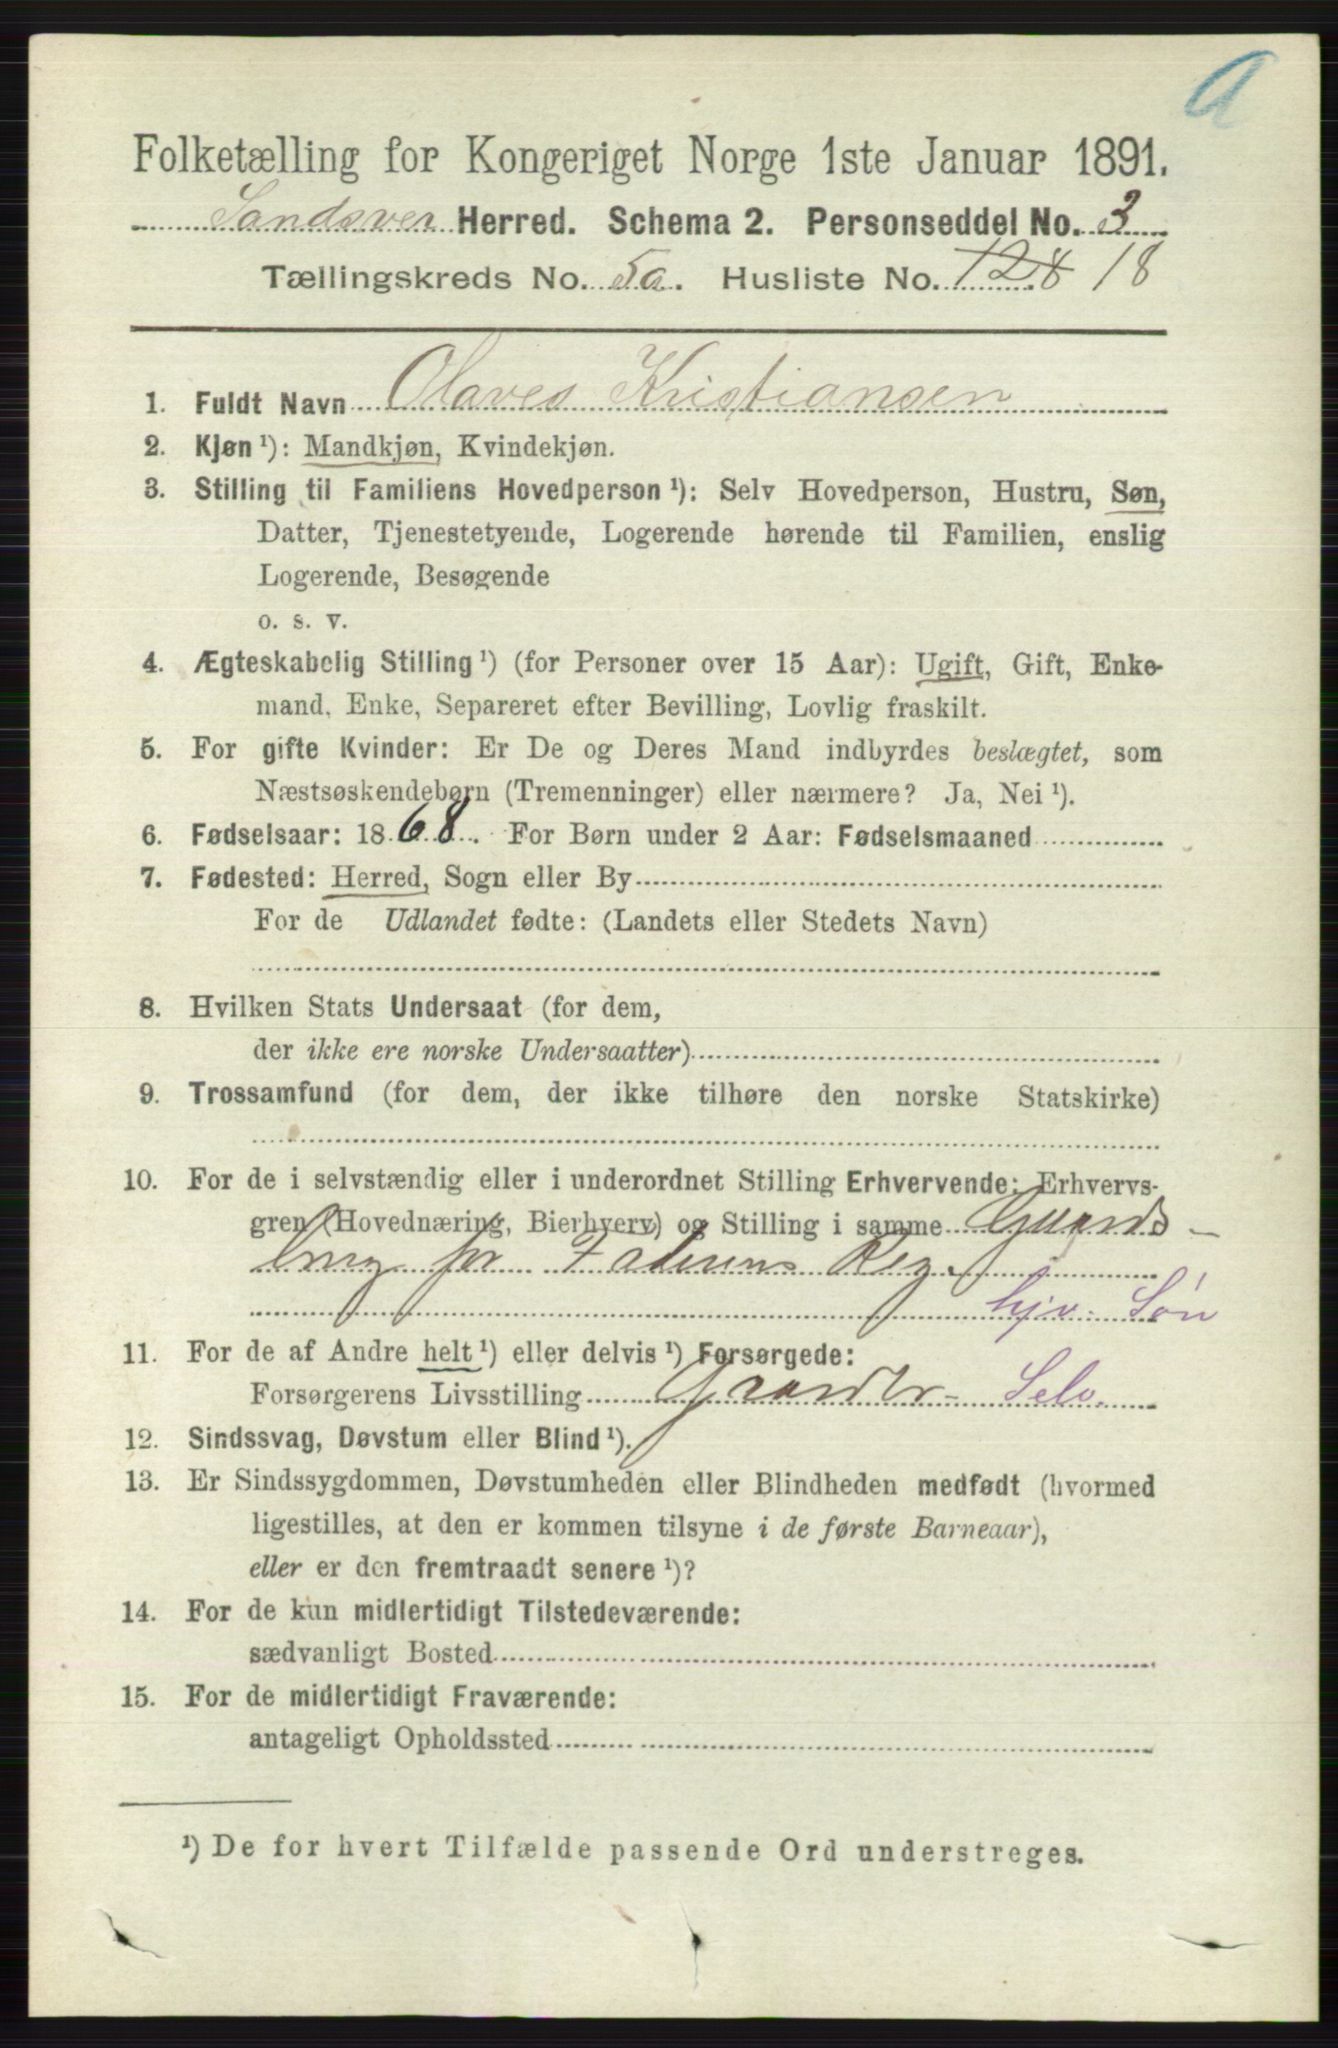 A
Folketælling for Kongeriget Norge 1ste Januar 1891.
Sandsver Herred. Schema 2. Personseddel No. 3
Tællingskreds No. 5a. Husliste No. 128 18
1. Fuldt Navn Olaves Kristiansen
2. Kjøn ¹): Mandkjøn, Kvindekjøn.
3. Stilling til Familiens Hovedperson ¹): Selv Hovedperson, Hustru, Søn,
Datter, Tjenestetyende, Logerende hørende til Familien, enslig
Logerende, Besøgende
o. s. v.
4. Ægteskabelig Stilling ¹) (for Personer over 15 Aar): Ugift, Gift, Enke-
mand, Enke, Separeret efter Bevilling, Lovlig fraskilt.
5. For gifte Kvinder: Er De og Deres Mand indbyrdes beslægtet, som
Næstsøskendebørn (Tremenninger) eller nærmere? Ja, Nei ¹).
6. Fødselsaar: 1868. For Børn under 2 Aar: Fødselsmaaned
7. Fødested: Herred, Sogn eller By
For de Udlandet fødte: (Landets eller Stedets Navn)
8. Hvilken Stats Undersaat (for dem,
der ikke ere norske Undersaatter)
9. Trossamfund (for dem, der ikke tilhøre den norske Statskirke)
10. For de i selvstændig eller i underordnet Stilling Erhvervende: Erhvervs-
gren (Hovednæring, Bierhverv) og Stilling i samme Gaards-
brug for Faderens Reg.
hjv. Søn
11. For de af Andre helt ¹) eller delvis ¹) Forsørgede:
Forsørgerens Livsstilling Gaardbr- Selv.
12. Sindssvag, Døvstum eller Blind ¹).
13. Er Sindssygdommen, Døvstumheden eller Blindheden medfødt (hvormed
ligestilles, at den er kommen tilsyne i de første Barneaar),
eller er den fremtraadt senere ¹)?
14. For de kun midlertidigt Tilstedeværende:
sædvanligt Bosted
15. For de midlertidigt Fraværende:
antageligt Opholdssted
¹) De for hvert Tilfælde passende Ord understreges.